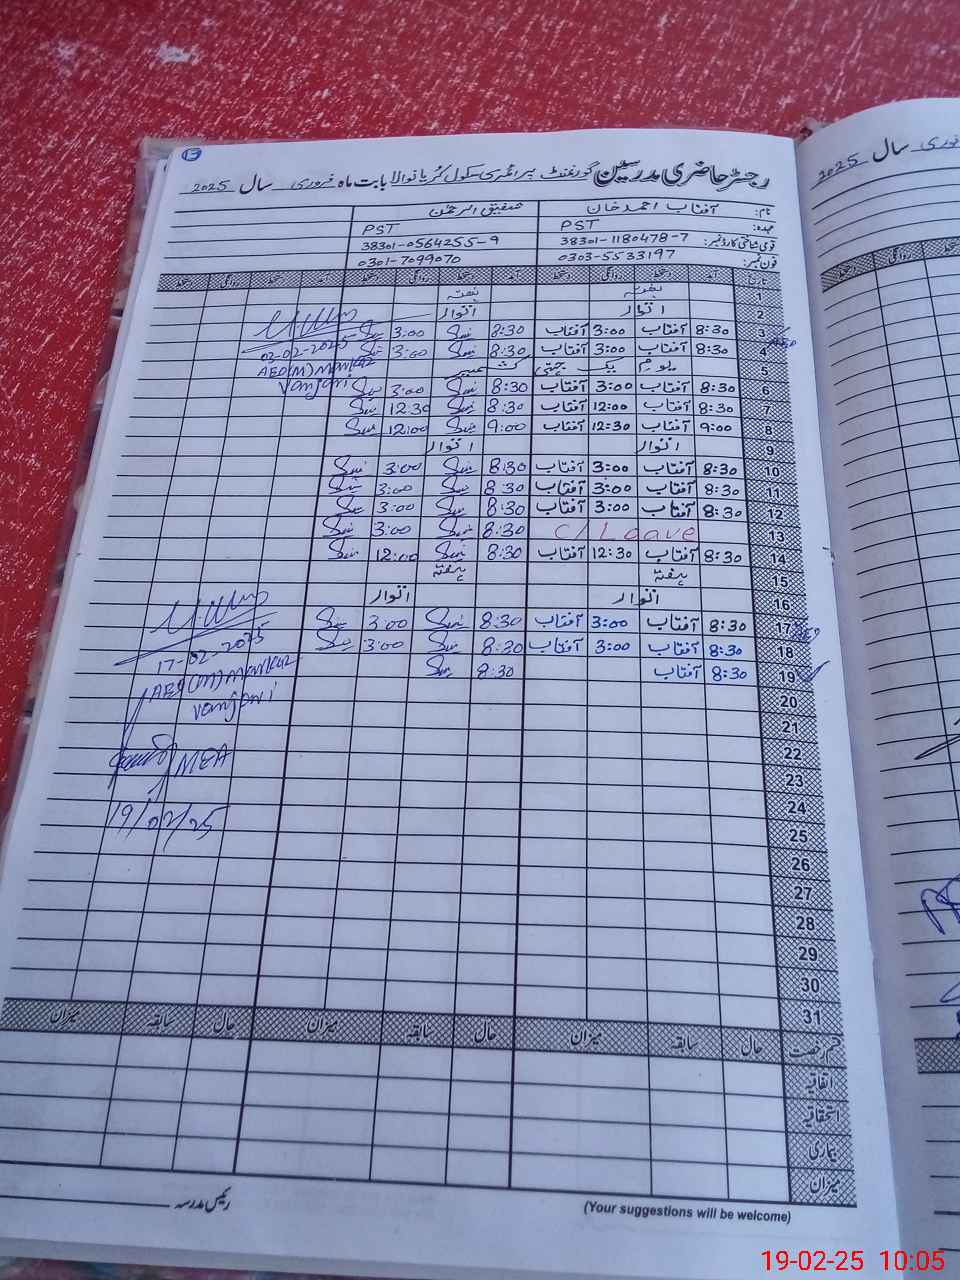 13
رجسٹر حاضری مدرسین گورنمنٹ پرائمری سکول کڑیانوالا بابت ماہ فروری سال 2025
نام: آفتاب احمد خان شفیق الرحمٰن
عہدہ: PST PST
قومی شناختی کارڈ نمبر: 38301-1180478-7 38301-0564255-9
فون نمبر: 0303-5533197 0301-7099070
تاریخ آمد دستخط روانگی دستخط آمد دستخط روانگی دستخط آمد دستخط روانگی دستخط
1 ہفتہ ہفتہ
2 اتوار اتوار
3 8:30 آفتاب 3:00 آفتاب 8:30 3:00
4 8:30 آفتاب 3:00 آفتاب 8:30 3:00
02-02-2025
5 یوم یک جہتی کشمیر
AEO(M) Markaz
6 8:30 آفتاب 3:00 آفتاب 8:30 3:00
Vanjari
7 8:30 آفتاب 12:00 آفتاب 8:30 12:30
8 9:00 آفتاب 12:30 آفتاب 9:00 12:00
9 اتوار اتوار
10 8:30 آفتاب 3:00 آفتاب 8:30 3:00
11 8:30 آفتاب 3:00 آفتاب 8:30 3:00
12 8:30 آفتاب 3:00 آفتاب 8:30 3:00
13 C/Leave 8:30 3:00
14 8:30 آفتاب 12:30 آفتاب 8:30 12:00
15 ہفتہ ہفتہ
16 اتوار اتوار
17 8:30 آفتاب 3:00 آفتاب 8:30 3:00
18 8:30 آفتاب 3:00 آفتاب 8:30 3:00
17-02-2025
19 8:30 آفتاب 8:30
AEO(M) Markaz
20
Vanjari
21
22
MEA
23
24
19/02/25
25
26
27
28
29
30
31
قسم رخصت حال سابقہ میزان حال سابقہ میزان حال سابقہ میزان
اتفاقیہ
استحقاقیہ
بیماری
میزان
رئیس مدرسہ
(Your suggestions will be welcome)
سال 2025
19-02-25 10:05